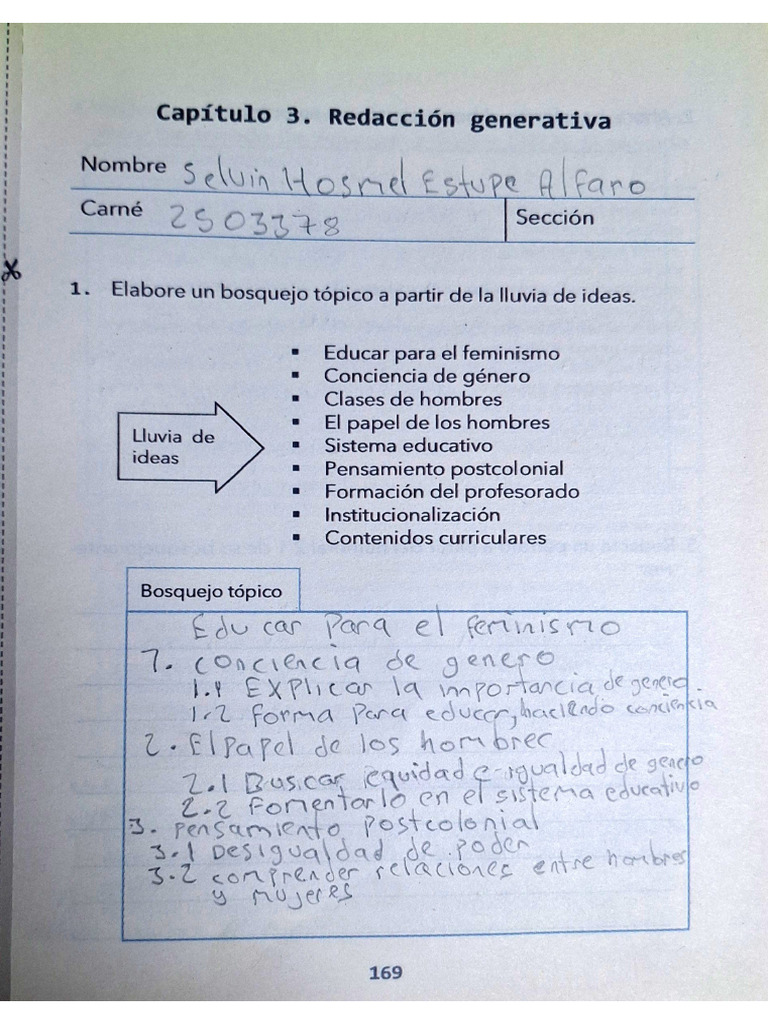 Capítulo 3. Redacción generativa
Nombre Selvin Hosmel Estupe Alfaro
Carné 2503378 Sección
1. Elabore un bosquejo tópico a partir de la lluvia de ideas.
▪ Educar para el feminismo
▪ Conciencia de género
▪ Clases de hombres
▪ El papel de los hombres
Lluvia de
ideas
▪ Sistema educativo
▪ Pensamiento postcolonial
▪ Formación del profesorado
▪ Institucionalización
▪ Contenidos curriculares
Bosquejo tópico
Educar para el feminismo
1. conciencia de genero
1.1 Explicar la importancia de genero
1.2 forma para educar, haciendo conciencia
2. El papel de los hombres
2.1 Buscar equidad e igualdad de genero
2.2 Fomentarlo en el sistema educativo
3. pensamiento postcolonial
3.1 Desigualdad de poder
3.2 comprender relaciones entre hombres
y mujeres
169